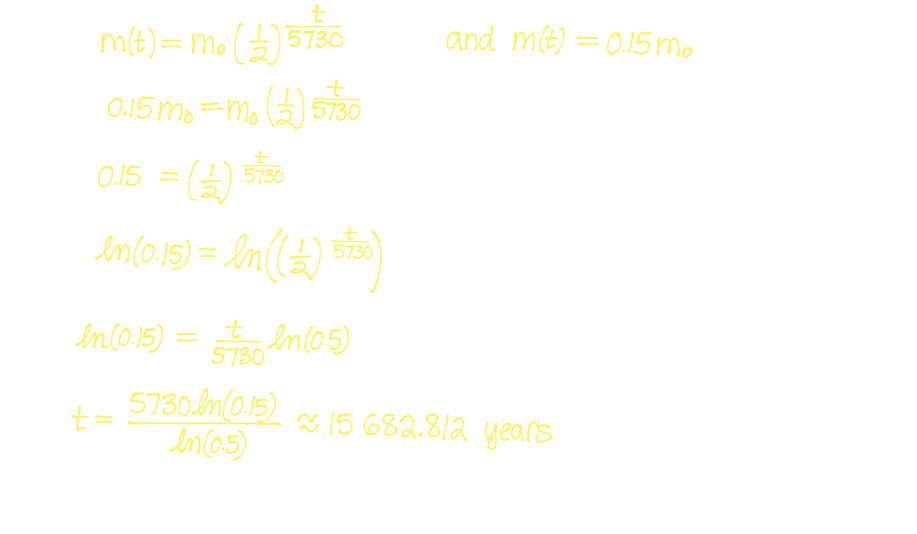 m(t) = m₀ (1/2)^(t/5730) and m(t) = 0.15 m₀
0.15 m₀ = m₀ (1/2)^(t/5730)
0.15 = (1/2)^(t/5730)
ln(0.15) = ln((1/2)^(t/5730))
ln(0.15) = t/5730 ln(0.5)
t = 5730 ln(0.15) / ln(0.5) ≈ 15 682.812 years